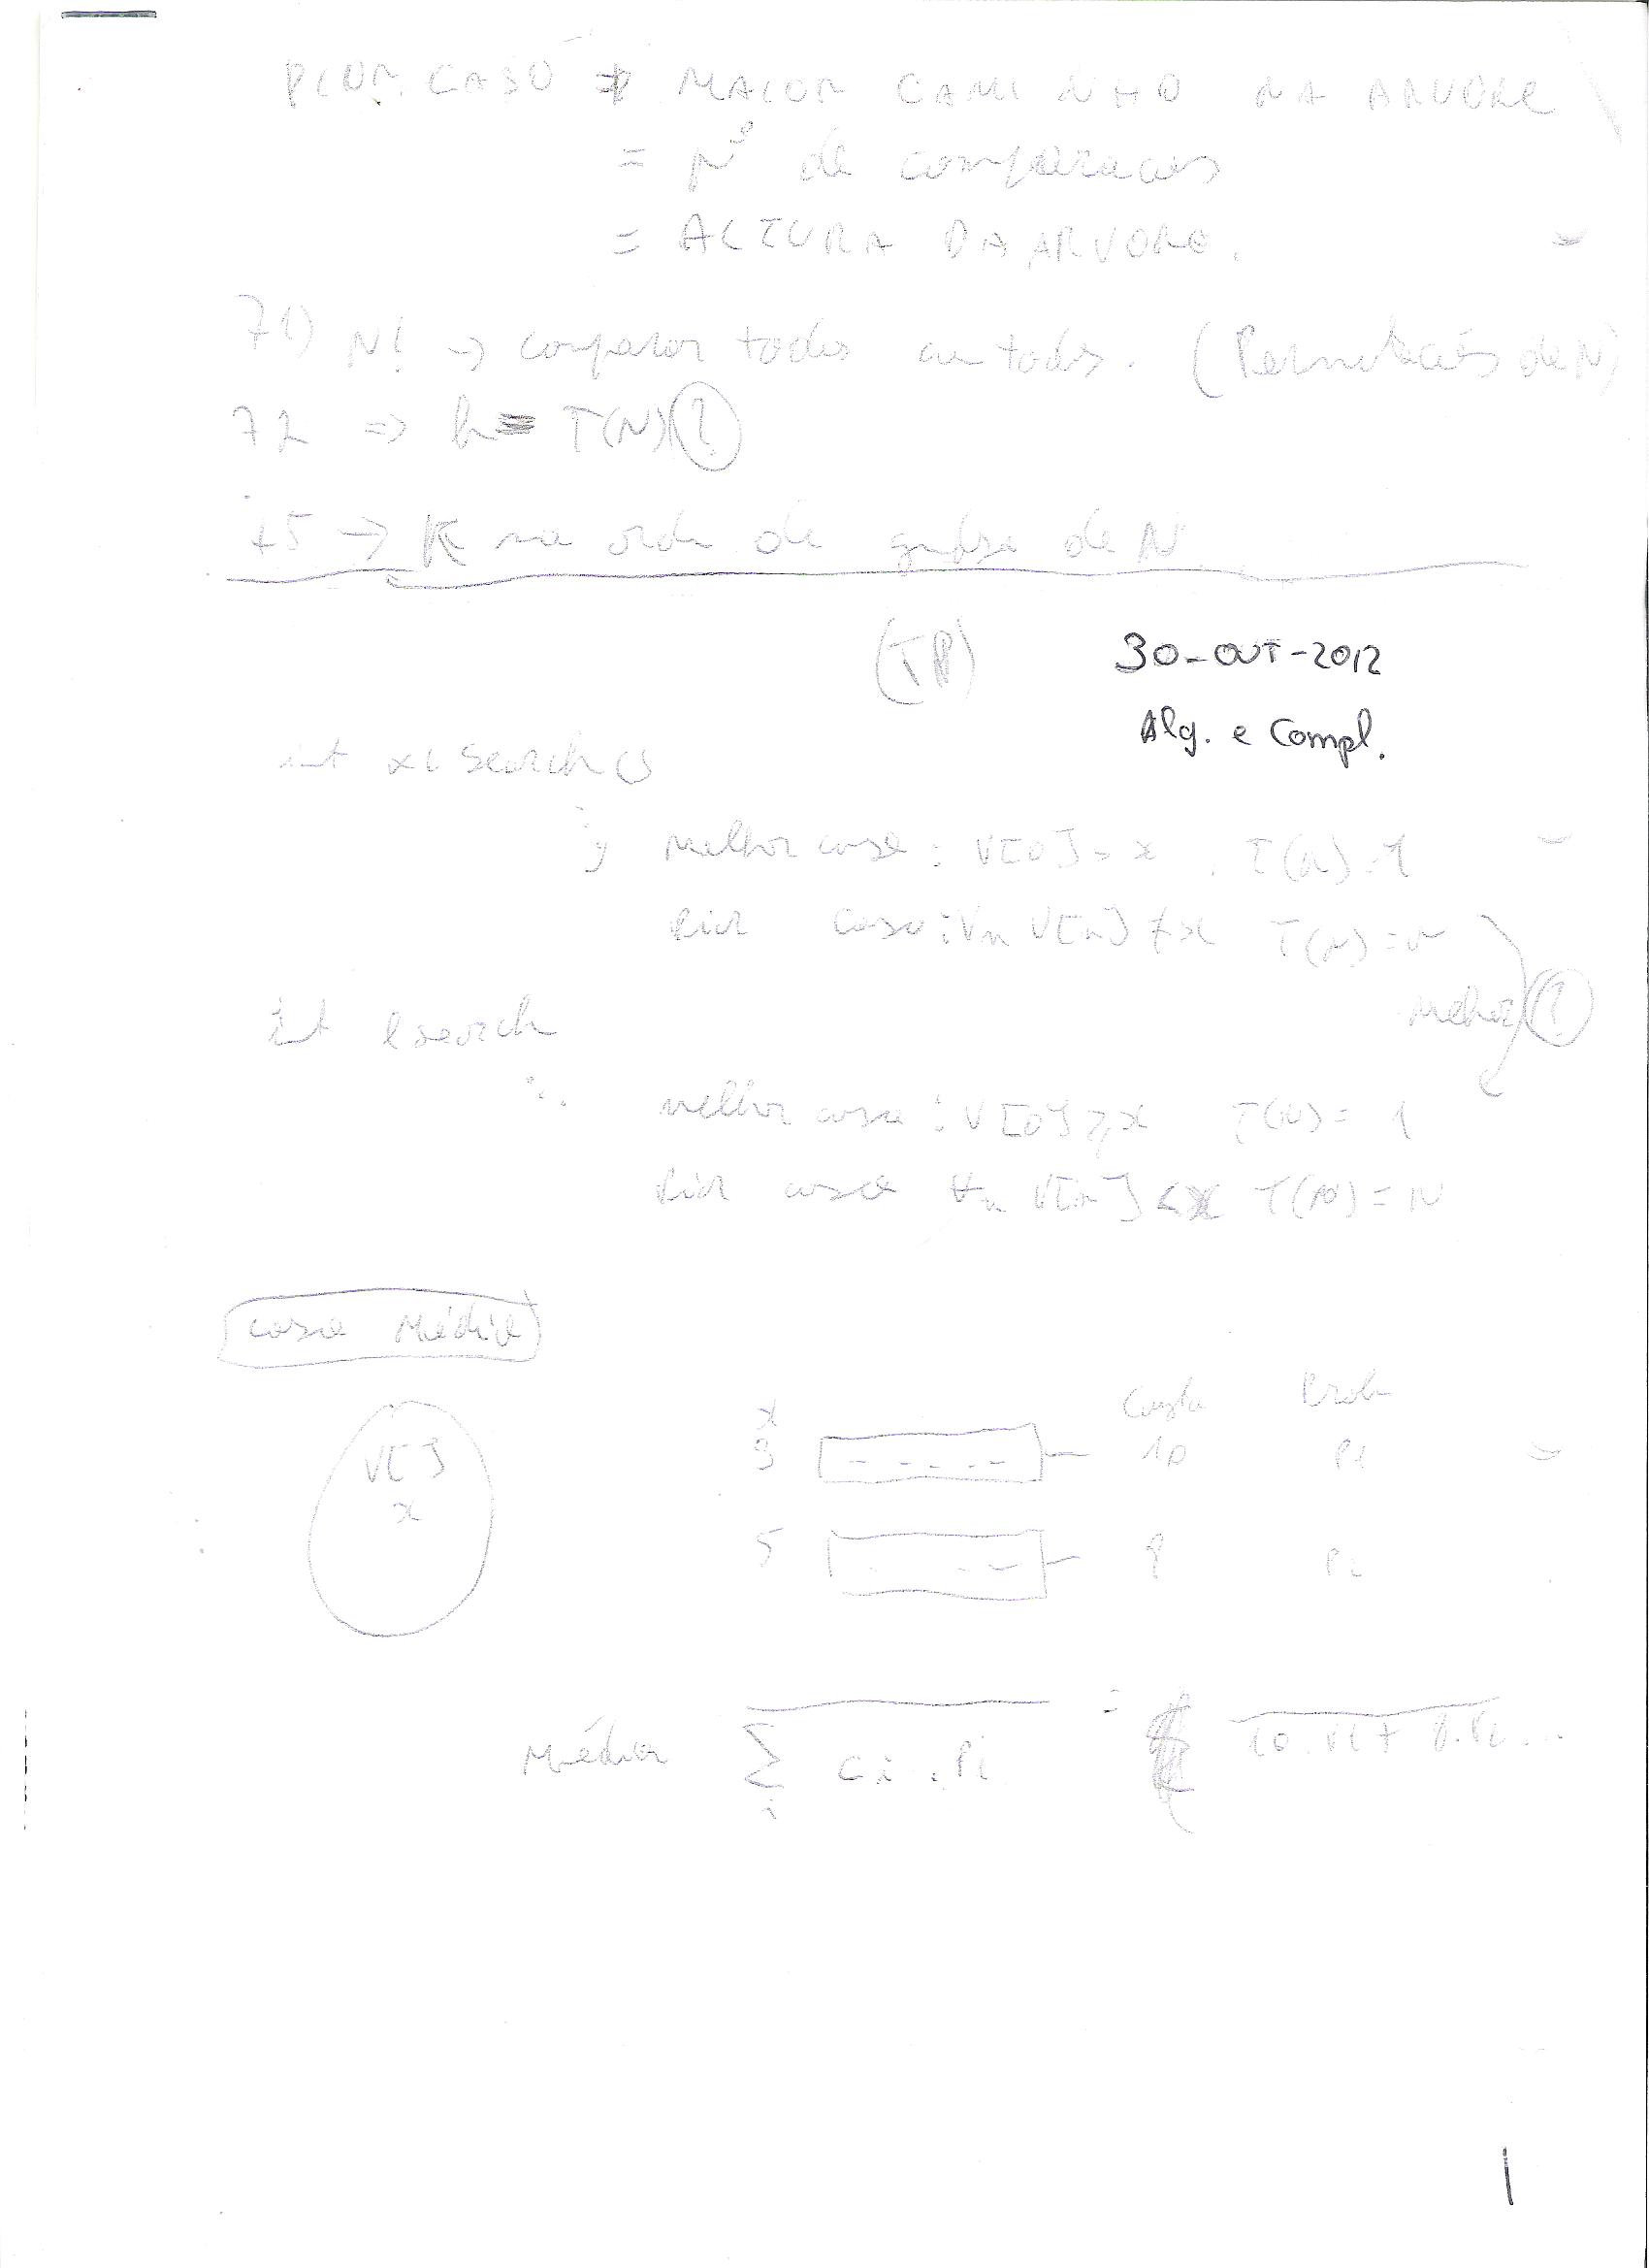 PIOR CASO → MAIOR CAMINHO NA ARVORE
= Nº de comparacoes
= ALTURA DA ARVORE.
71) N! → comparar todos com todos. (Permutacões de N)
72 => h = T(N) ?
75 → K na ordem de grandeza de N
(TP)
30-OUT-2012
Alg. e Compl.
int search()
Melhor caso: V[0] = x . T(N) = 1
Pior caso: ∀n V[n] ≠ x T(N) = N
Melhor ?
int lsearch
melhor caso: V[0] ≥ x T(N) = 1
Pior caso ∀n V[n] < x T(N) = N
Caso Médio
Custo Prob
V[] x 3 10 P1
x 5 8 P2
Média Σ i Ci . Pi = 10.P1 + 8.P2 ...
1